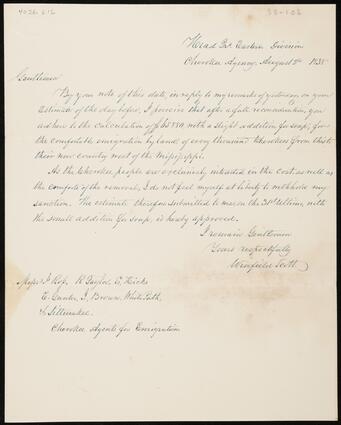 4026.212
38-102
Head Qrs. Eastern Division
Cherokee Agency, August 2d 1838
Gentlemen
By your note of this date, in reply to my remarks of yesterday on your
Estimate of the day before, I perceive that after a full reconsideration, you
adhere to the calculation of $65.880, with a slight addition for soap, for
the comfortable emigration by land, of every thousand Cherokees from this to
their new country west of the Mississippi.
As the Cherokee people are exclusively interested in the cost, as well as
the comforts of the removal, I do not feel myself at liberty to withhold my
sanction. The estimate therefore submitted to me on the 31st ultimo, with
the small addition for soap, is hereby approved.
I remain Gentlemen
Yours respectfully
Winfield Scott
Messrs J. Ross, R Taylor, E, Hicks
E. Gunter, J, Brown, White Path,
& Situwakee.
Cherokee Agents for Emigration